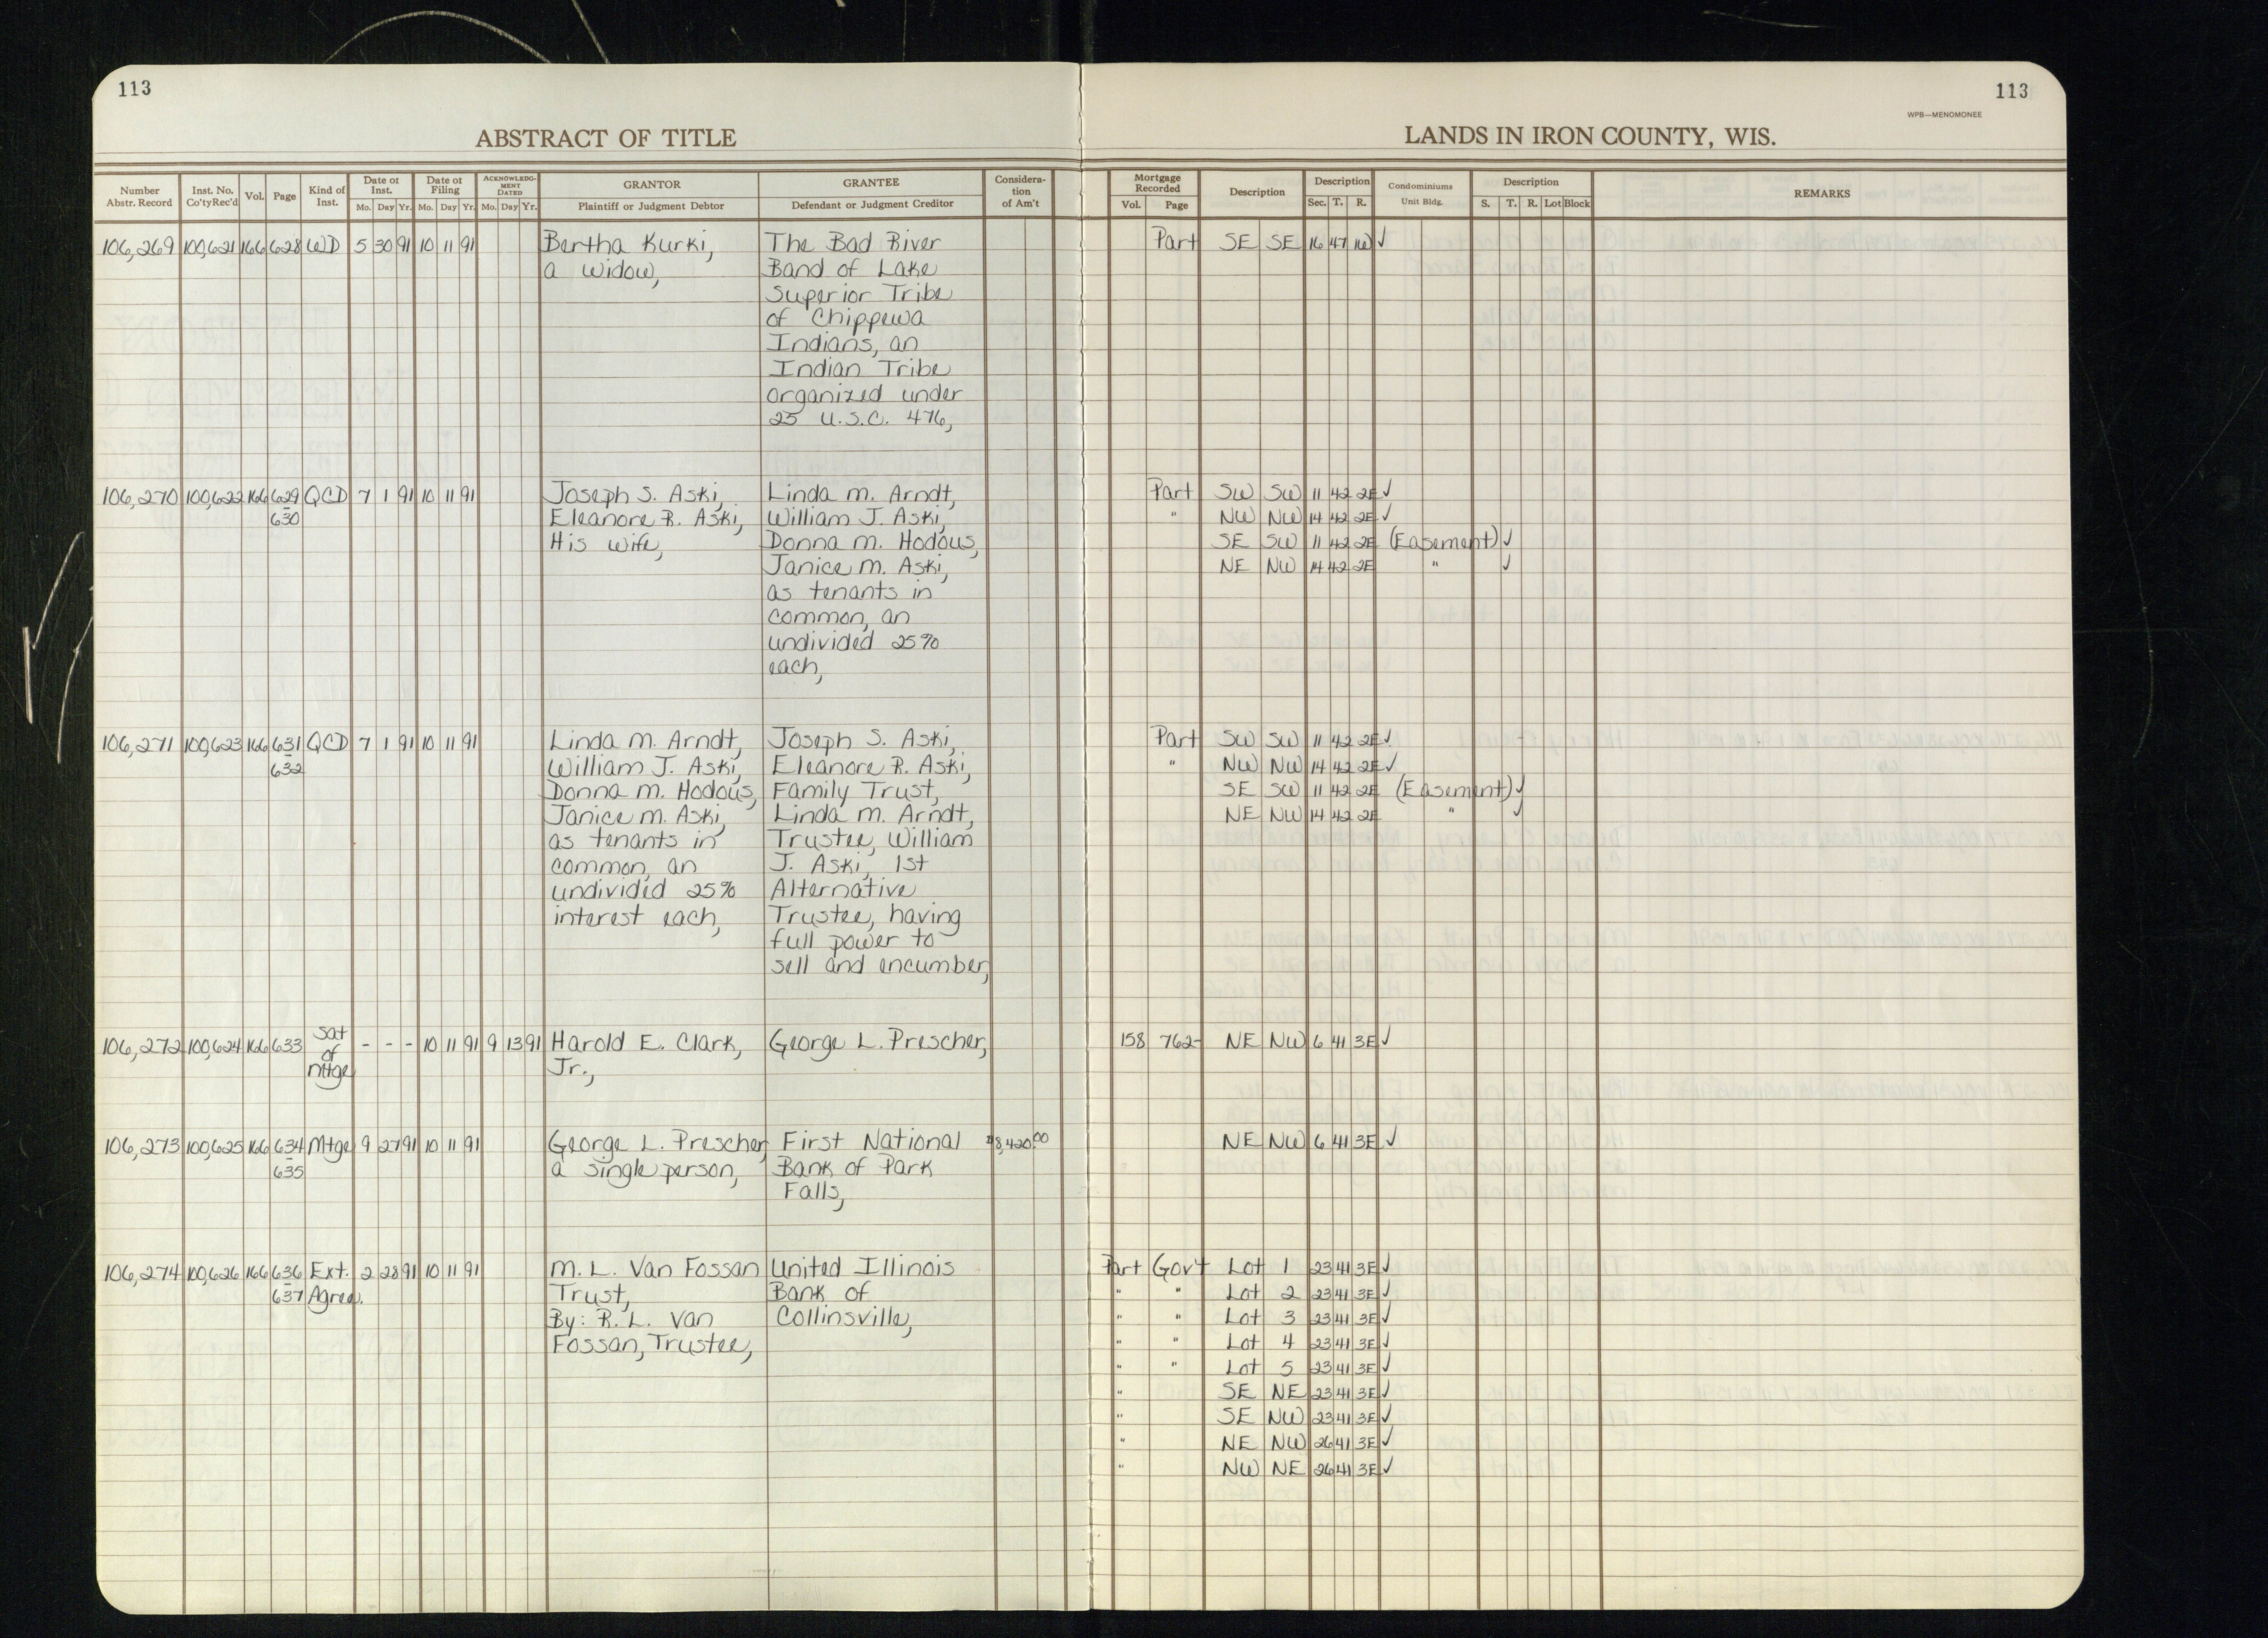 113
113
WPB—MENOMONEE
ABSTRACT OF TITLE
LANDS IN IRON COUNTY, WIS.
Number Abstr. Record | Inst. No. Co'ty Rec'd | Vol. | Page | Kind of Inst. | Date of Inst. Mo. Day Yr. | Date of Filing Mo. Day Yr. | ACKNOWLEDGMENT DATED Mo. Day Yr. | GRANTOR Plaintiff or Judgment Debtor | GRANTEE Defendant or Judgment Creditor | Consideration of Am't | Mortgage Recorded Vol. Page | Description | Description Sec. T. R. | Condominiums Unit Bldg. | Description S. T. R. Lot Block | REMARKS
106,269 100,621 166 628 WD 5 30 91 10 11 91 Bertha Kurki, The Bad River Part SE SE 16 47 1W ✓
a widow, Band of Lake
Superior Tribe
of Chippewa
Indians, an
Indian Tribe
organized under
25 U.S.C. 476,
106,270 100,622 166 629 QCD 7 1 91 10 11 91 Joseph S. Aski, Linda M. Arndt, Part SW SW 11 42 2E ✓
630 Eleanore R. Aski, William J. Aski, " NW NW 14 42 2E ✓
His wife, Donna M. Hodous, SE SW 11 42 2E (Easement) ✓
Janice M. Aski, NE NW 14 42 2E " ✓
as tenants in
common, an
undivided 25%
each,
106,271 100,623 166 631 QCD 7 1 91 10 11 91 Linda M. Arndt, Joseph S. Aski, Part SW SW 11 42 2E ✓
632 William J. Aski, Eleanore R. Aski, " NW NW 14 42 2E ✓
Donna M. Hodous, Family Trust, SE SW 11 42 2E (Easement) ✓
Janice M. Aski, Linda M. Arndt, NE NW 14 42 2E " ✓
as tenants in Trustee, William
common, an J. Aski, 1st
undivided 25% Alternative
interest each, Trustee, having
full power to
sell and encumber,
106,272 100,624 166 633 Sat of Mtge - - - 10 11 91 9 13 91 Harold E. Clark, George L. Prescher, 158 762 NE NW 6 41 3E ✓
Jr.,
106,273 100,625 166 634 Mtge 9 27 91 10 11 91 George L. Prescher, First National $8,420.00 NE NW 6 41 3E ✓
635 a single person, Bank of Park
Falls,
106,274 100,626 166 636 Ext. 2 28 91 10 11 91 M. L. Van Fossan United Illinois Part Gov't Lot 1 23 41 3E ✓
637 Agree. Trust, Bank of " " Lot 2 23 41 3E ✓
By: R. L. Van Collinsville, " " Lot 3 23 41 3E ✓
Fossan, Trustee, " " Lot 4 23 41 3E ✓
" " Lot 5 23 41 3E ✓
" SE NE 23 41 3E ✓
" SE NW 23 41 3E ✓
" NE NW 26 41 3E ✓
" NW NE 26 41 3E ✓